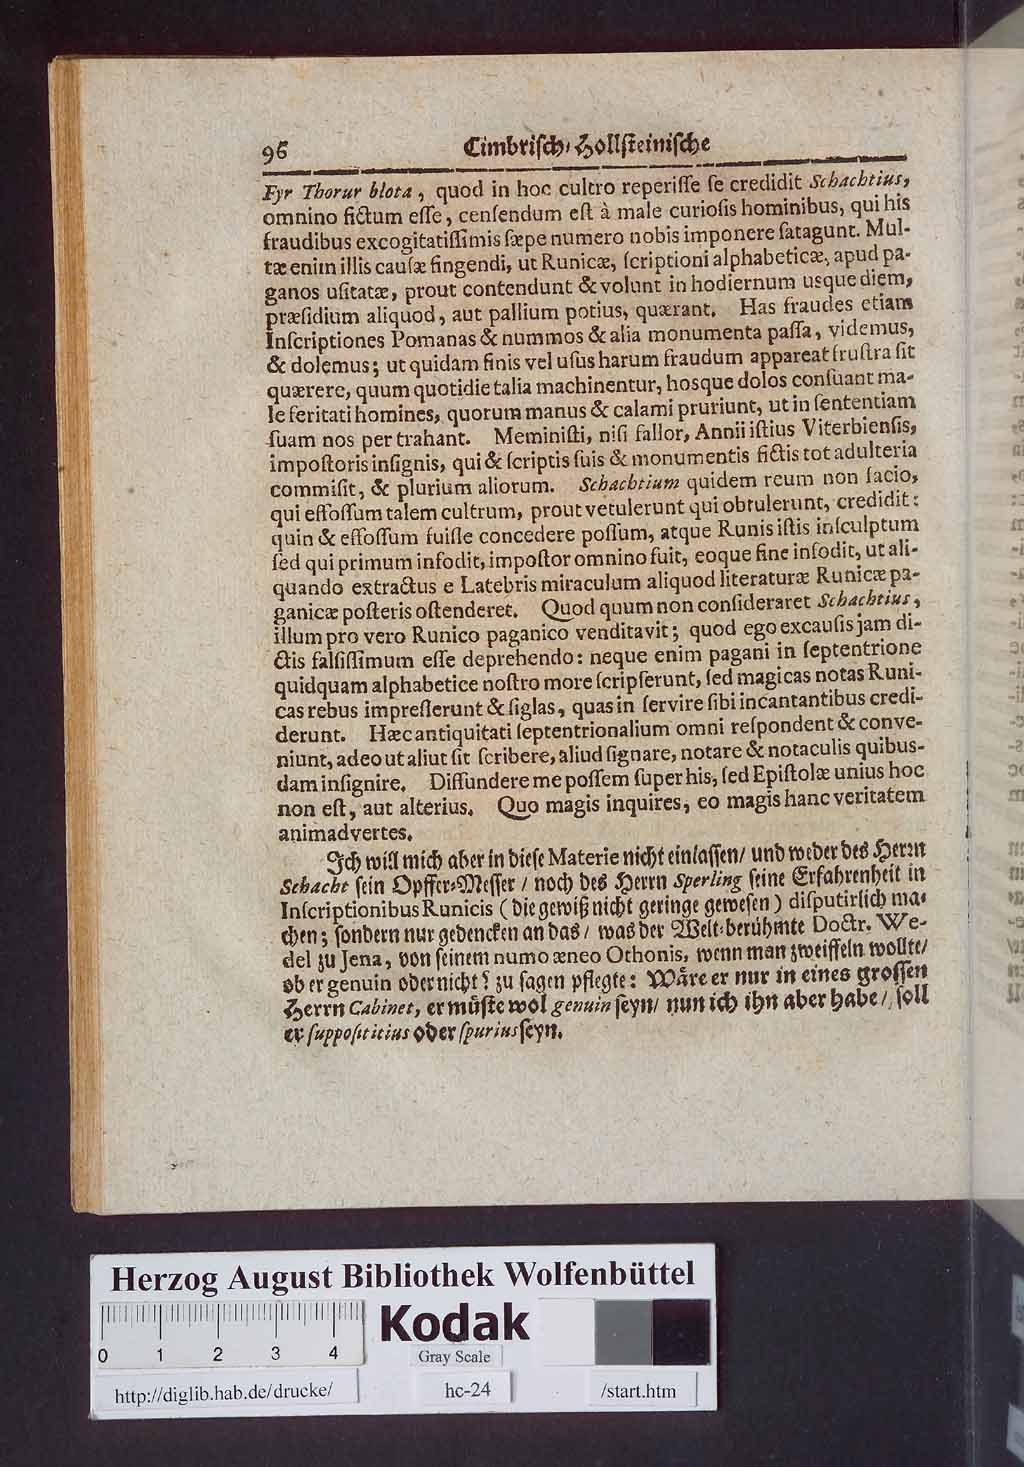 96 Cimbriſch-Hollſteiniſche
Fyr Thorur blota, quod in hoc cultro reperiſſe ſe credidit Schachtius,
omnino fictum eſſe, cenſendum eſt à male curioſis hominibus, qui his
fraudibus excogitatiſſimis ſæpe numero nobis imponere ſatagunt. Mul-
tæ enim illis cauſæ fingendi, ut Runicæ, ſcriptioni alphabeticæ, apud pa-
ganos uſitatæ, prout contendunt & volunt in hodiernum usque diem,
præſidium aliquod, aut pallium potius, quærant. Has fraudes etiam
Inſcriptiones Pomanas & nummos & alia monumenta paſſa, videmus,
& dolemus; ut quidam finis vel uſus harum fraudum appareat fruſtra ſit
quærere, quum quotidie talia machinentur, hosque dolos conſuant ma-
le feritati homines, quorum manus & calami pruriunt, ut in ſententiam
ſuam nos per trahant. Meminiſti, niſi fallor, Annii iſtius Viterbienſis,
impoſtoris inſignis, qui & ſcriptis ſuis & monumentis fictis tot adulteria
commiſit, & plurium aliorum. Schachtium quidem reum non facio,
qui effoſſum talem cultrum, prout vetulerunt qui obtulerunt, credidit:
quin & effoſſum fuiſſe concedere poſſum, atque Runis iſtis inſculptum
ſed qui primum infodit, impoſtor omnino fuit, eoque fine infodit, ut ali-
quando extractus e Latebris miraculum aliquod literaturæ Runicæ pa-
ganicæ poſteris oſtenderet. Quod quum non conſideraret Schachtius,
illum pro vero Runico paganico venditavit; quod ego ex cauſis jam di-
ctis falſiſſimum eſſe deprehendo: neque enim pagani in ſeptentrione
quidquam alphabetice noſtro more ſcripſerunt, ſed magicas notas Runi-
cas rebus impreſſerunt & ſiglas, quas in ſervire ſibi incantantibus credi-
derunt. Hæc antiquitati ſeptentrionalium omni reſpondent & conve-
niunt, adeo ut aliut ſit ſcribere, aliud ſignare, notare & notaculis quibus-
dam inſignire. Diffundere me poſſem ſuper his, ſed Epiſtolæ unius hoc
non eſt, aut alterius. Quo magis inquires, eo magis hanc veritatem
animadvertes.
Ich will mich aber in dieſe Materie nicht einlaſſen/ und weder des Herrn
Schacht ſein Opffer-Meſſer / noch des Herrn Sperling ſeine Erfahrenheit in
Inſcriptionibus Runicis ( die gewiß nicht geringe geweſen ) diſputirlich ma-
chen; ſondern nur gedencken an das / was der Welt-berühmte Doctr. We-
del zu Jena, von ſeinem numo æneo Othonis, wenn man zweiffeln wollte/
ob er genuin oder nicht? zu ſagen pflegte: Wäre er nur in eines groſſen
Herrn Cabinet, er müſte wol genuin ſeyn/ nun ich ihn aber habe/ ſoll
er ſuppoſititius oder ſpurius ſeyn.
Herzog August Bibliothek Wolfenbüttel
Kodak
0 1 2 3 4
Gray Scale
http://diglib.hab.de/drucke/ hc-24 /start.htm